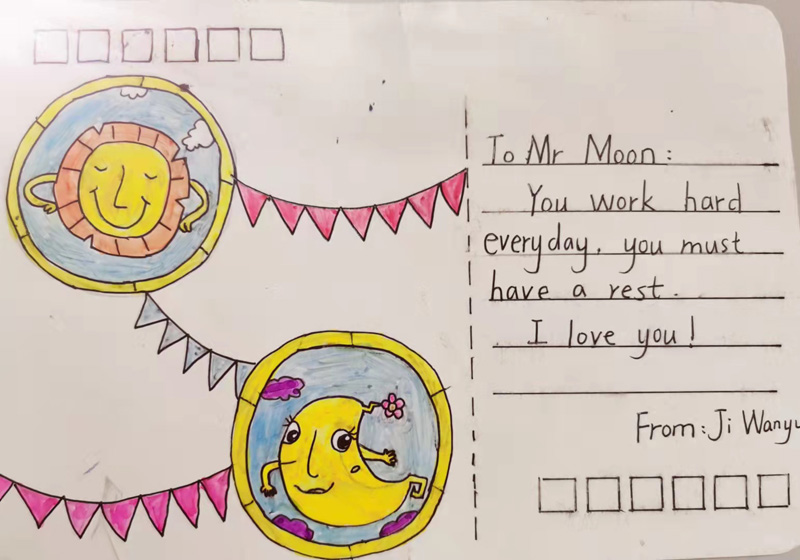 To Mr Moon:
You work hard
everyday, you must
have a rest.
I love you!
From: Ji Wanyu